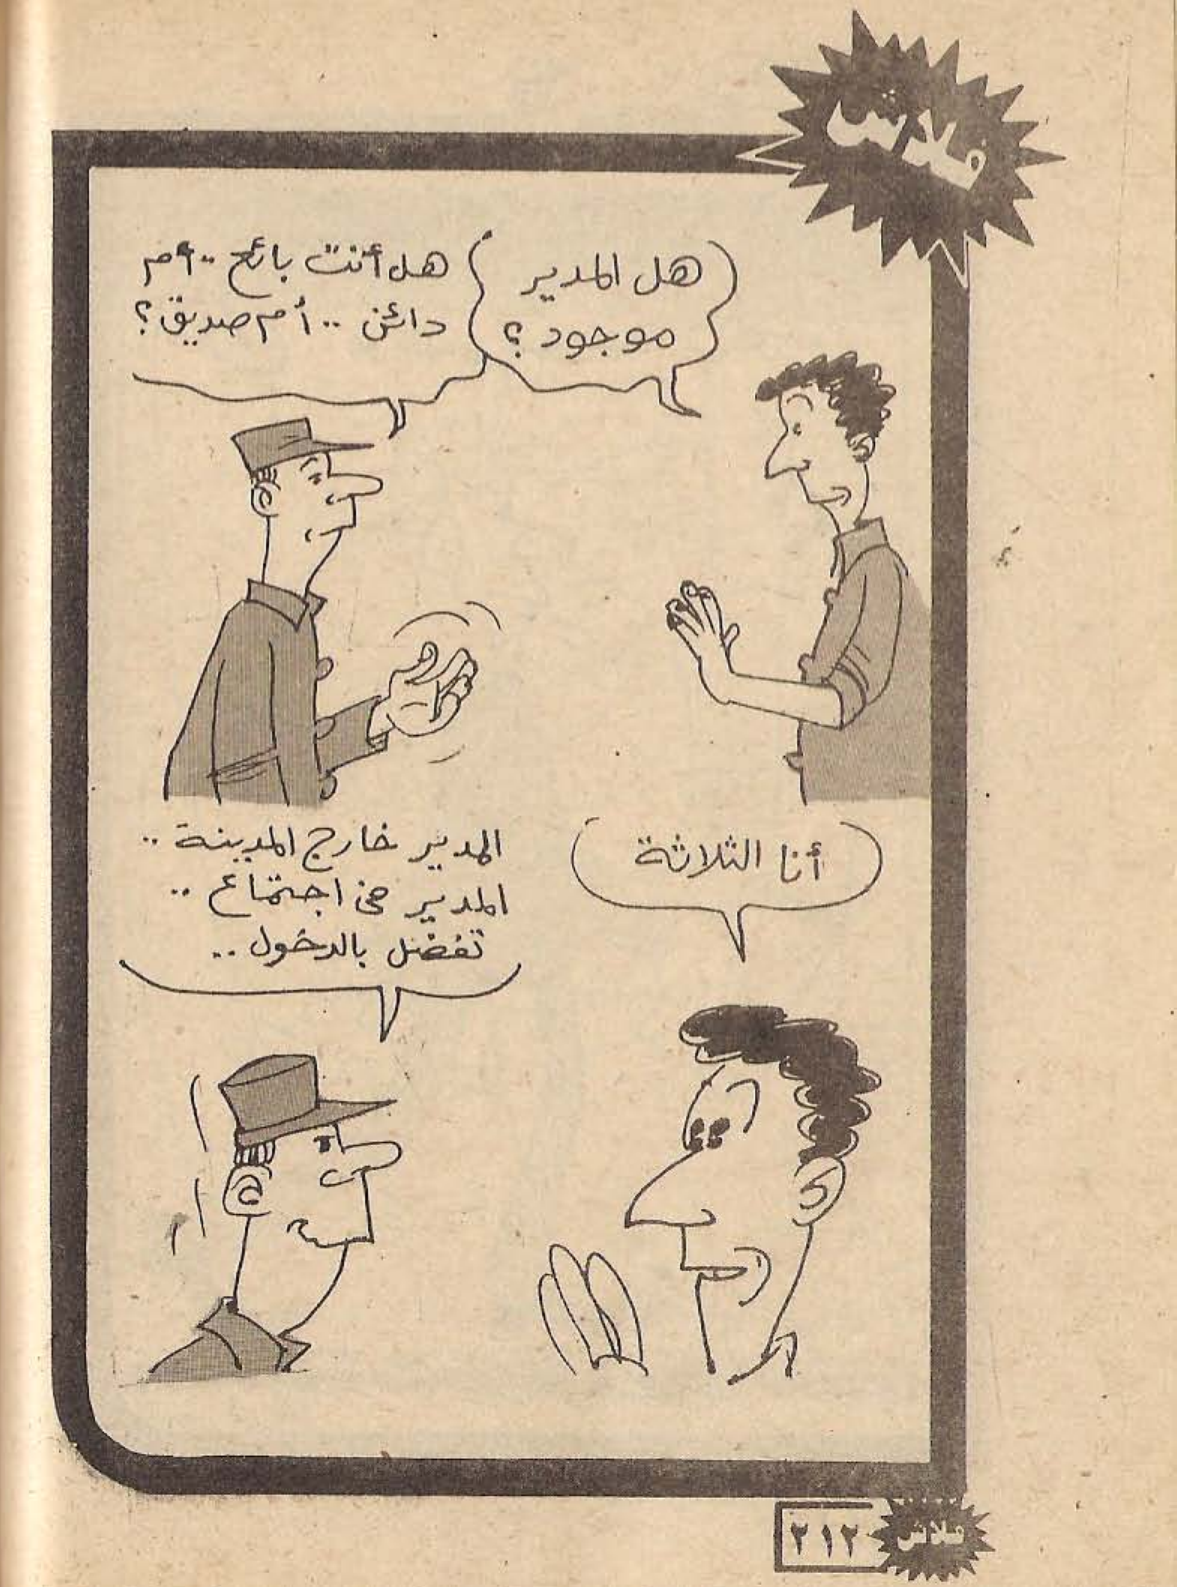 فلاش
هل المدير
موجود؟
هل أنت بائع .. أم
دائن .. أم صديق؟
أنا الثلاثة
المدير خارج المدينة ..
المدير في اجتماع ..
تفضل بالدخول ..
فلاش
٢١٢